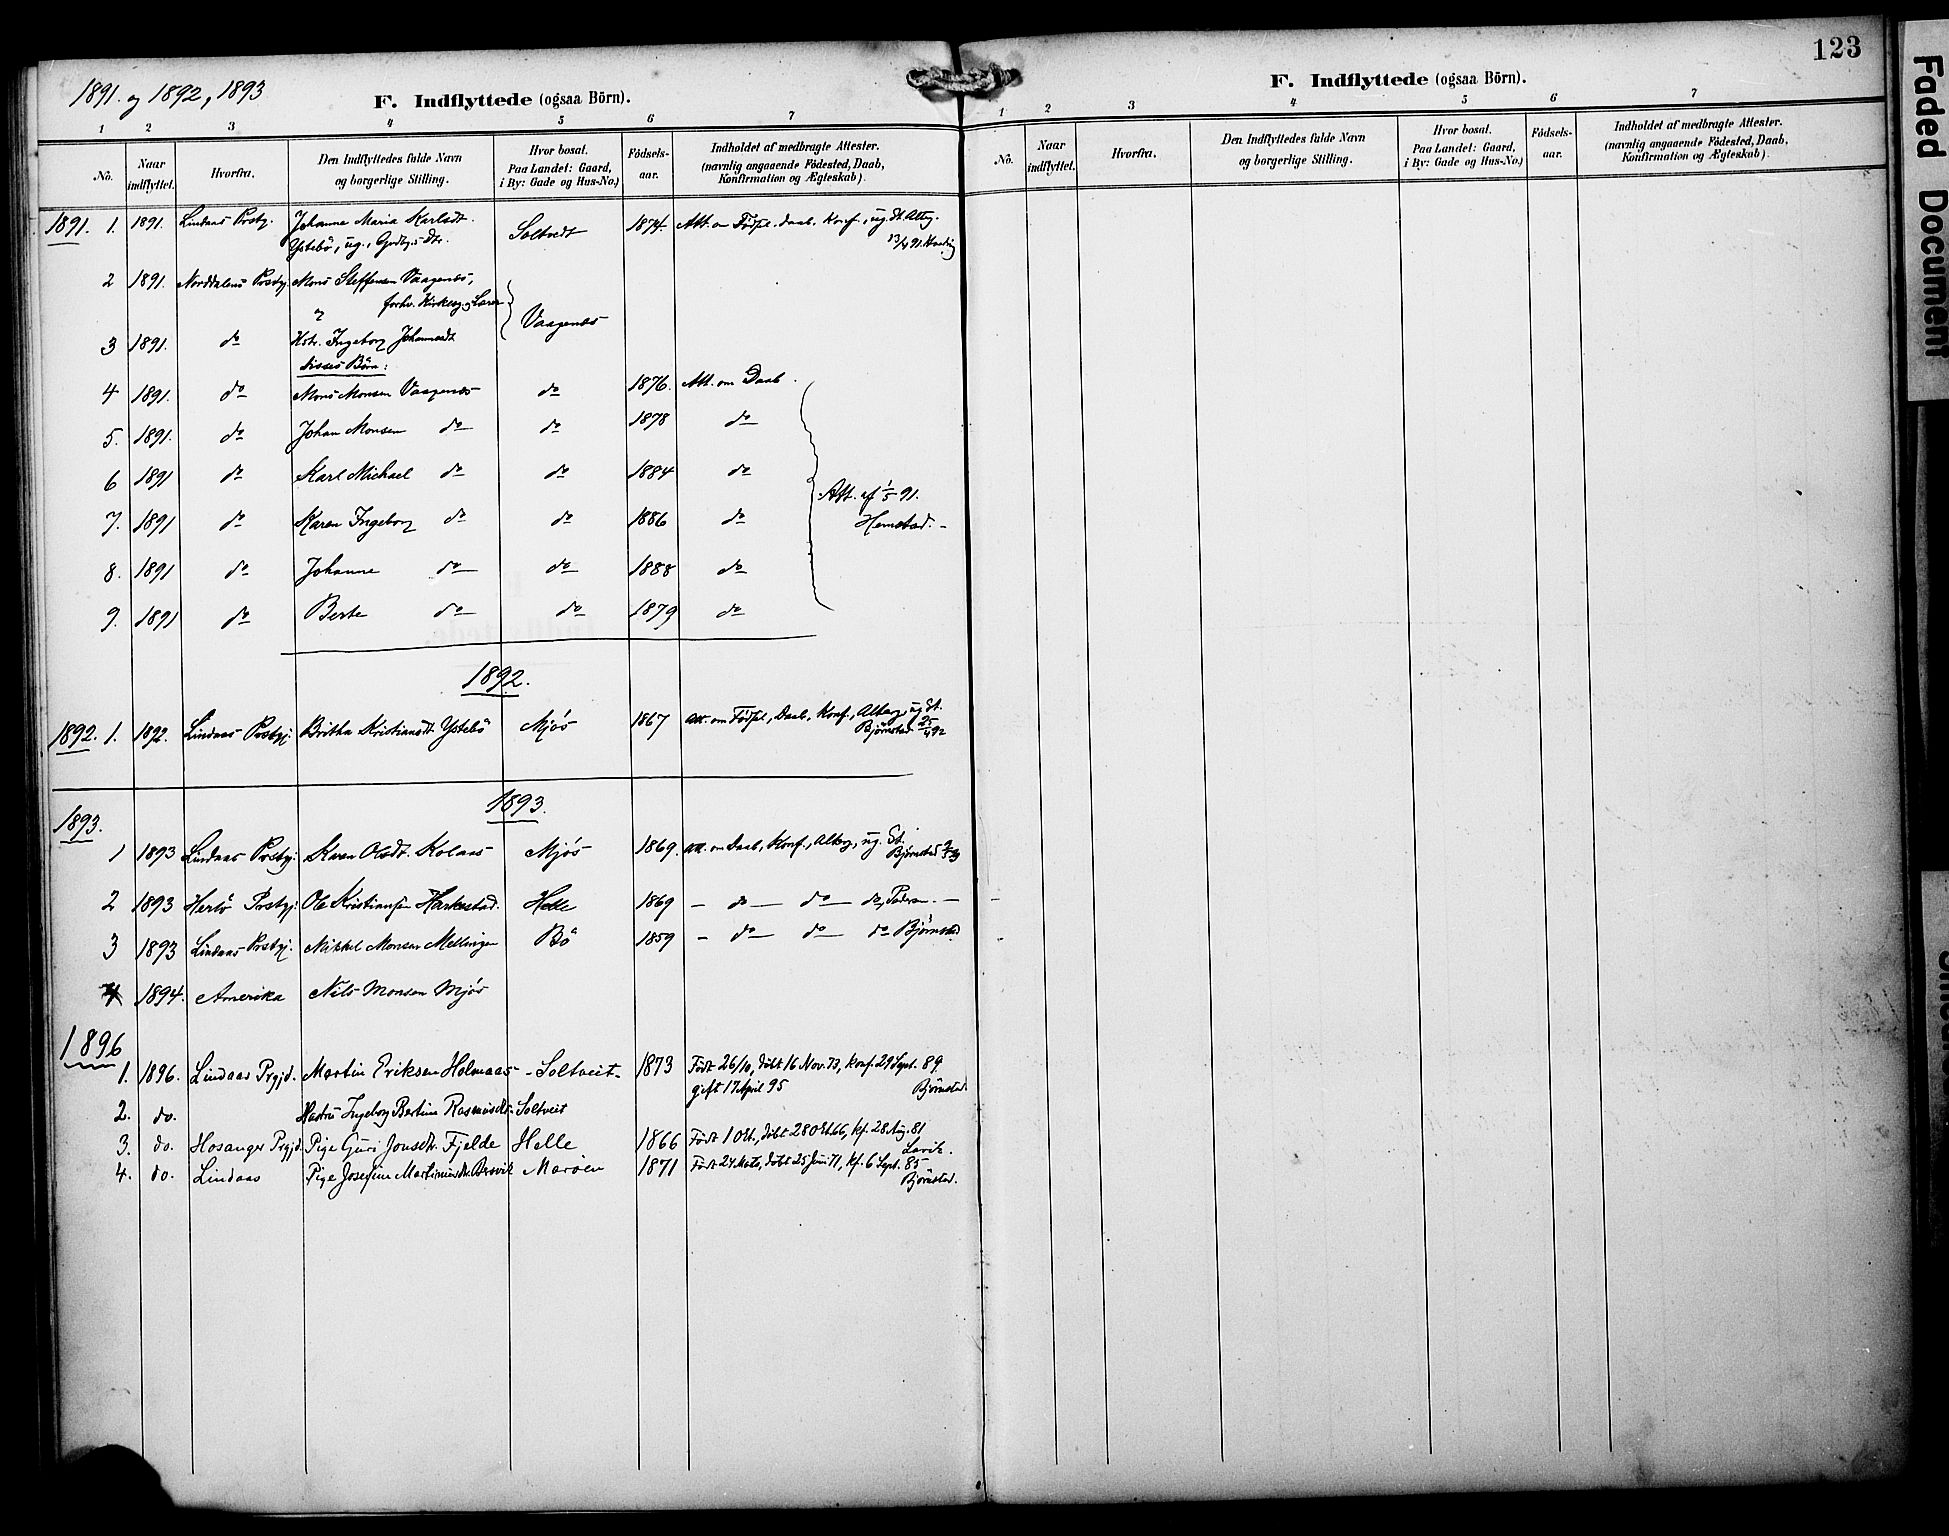 1891. og 1892, 1893
F. Indflyttede (ogsaa Börn).
1 2 3 4 5 6 7
No. Naar indflyttet. Hvorfra. Den Indflyttedes fulde Navn og borgerlige Stilling. Hvor bosat. Paa Landet: Gaard, i By: Gade og Hus-No.) Födsels-aar. Indholdet af medbragte Attester. (navnlig angaaende Födested, Daab, Konfirmation og Ægteskab).
1891. 1. 1891. Lindaas Prstgj. Johanne Maria Karlsdt. Soltvedt 1874. Att. om Födsel. Daab. Konf., ug. St. Altg.
Ystebö, ug., Gdbrg.s Dtr. 13/4 91.
2 1891. Norddalens Prstgj. Mons Steffensen Vaagenæs,
forhv. Kirkesg. og Lærer Vaagenæs
og
3 1891. do Hstr. Ingeborg Johannesdt
disses Börn:
4 1891. do Mons Monsen Vaagenæs do 1876. Att. om Daab.
5. 1891. do Johan Monsen do do 1878 do
6 1891 do Karl Michael do do 1884 do
Att. af 1/5 91.
7. 1891 do Karen Ingeborg do do 1886 do Hemstad. -
8. 1891 do Johanne do do 1888 do
9. 1891 do Berte do do 1879 do
1892.
1892. 1. 1892. Lindaas Prstgj. Britha Kristiansdt. Ystebö Mjös 1867 Att. om Födsel, Daab, Konf., Alterg., ug. St.
Björnstad 25/4 92
1893.
1893.
1 1893 Lindaas Prstgj. Karen Olsdt. Kolaas Mjös 1869. Att. om Daab, Konf., Alterg., ug. St.
Björnstad
2 1893 Herlö Prstgj. Ole Kristiansen Harkestad. Helle 1869 – do – do – do, –
3 1893 Lindaas Prstgj. Mikkel Monsen Mellingen Bö 1859 – do – do – do Björnstad
4 1894. Amerika Nils Monsen Mjös
1896
1. 1896. Lindaas Prgjd. Martin Eriksen Holmaas - Soltveit - 1873 Födt 26/10, döbt 16 Nov. 73, konf. 29 Sept. 89
gift 17 April 95 Björnstad
2. do. Hustru Ingeborg Bertine Rasmusdtr. Soltveit
3. do. Hosanger Prgjd. Pige Guri Jonsdtr. Fjelde Helle 1866 Födt 1 Okt., döbt 28 Okt 66, kf. 28 Aug. 81
Lavik.
4. do. Lindaas Pige Josefine Martinusdtr. Maröen 1871 Födt 24 Mats, döbt 25 Juni 71, kf. 6 Sept. 85
Björnstad.
123
F. Indflyttede (ogsaa Börn).
1 2 3 4 5 6 7
No. Naar indflyttet. Hvorfra. Den Indflyttedes fulde Navn og borgerlige Stilling. Hvor bosat. Paa Landet: Gaard, i By: Gade og Hus-No.) Födsels-aar. Indholdet af medbragte Attester. (navnlig angaaende Födested, Daab, Konfirmation og Ægteskab).
Faded Document